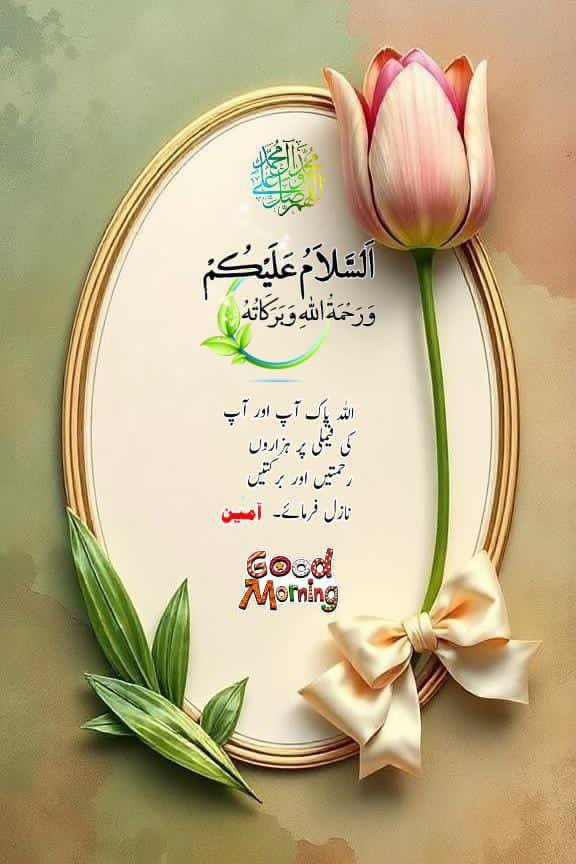 اللهم صل على محمد وآل محمد
اَلسَّلَامُ عَلَيْكُمْ
وَرَحْمَةُ اللهِ وَبَرَكَاتُهُ
اللہ پاک آپ اور آپ
کی فیملی پر ہزاروں
رحمتیں اور برکتیں
نازل فرمائے۔ آمین
Good
Morning